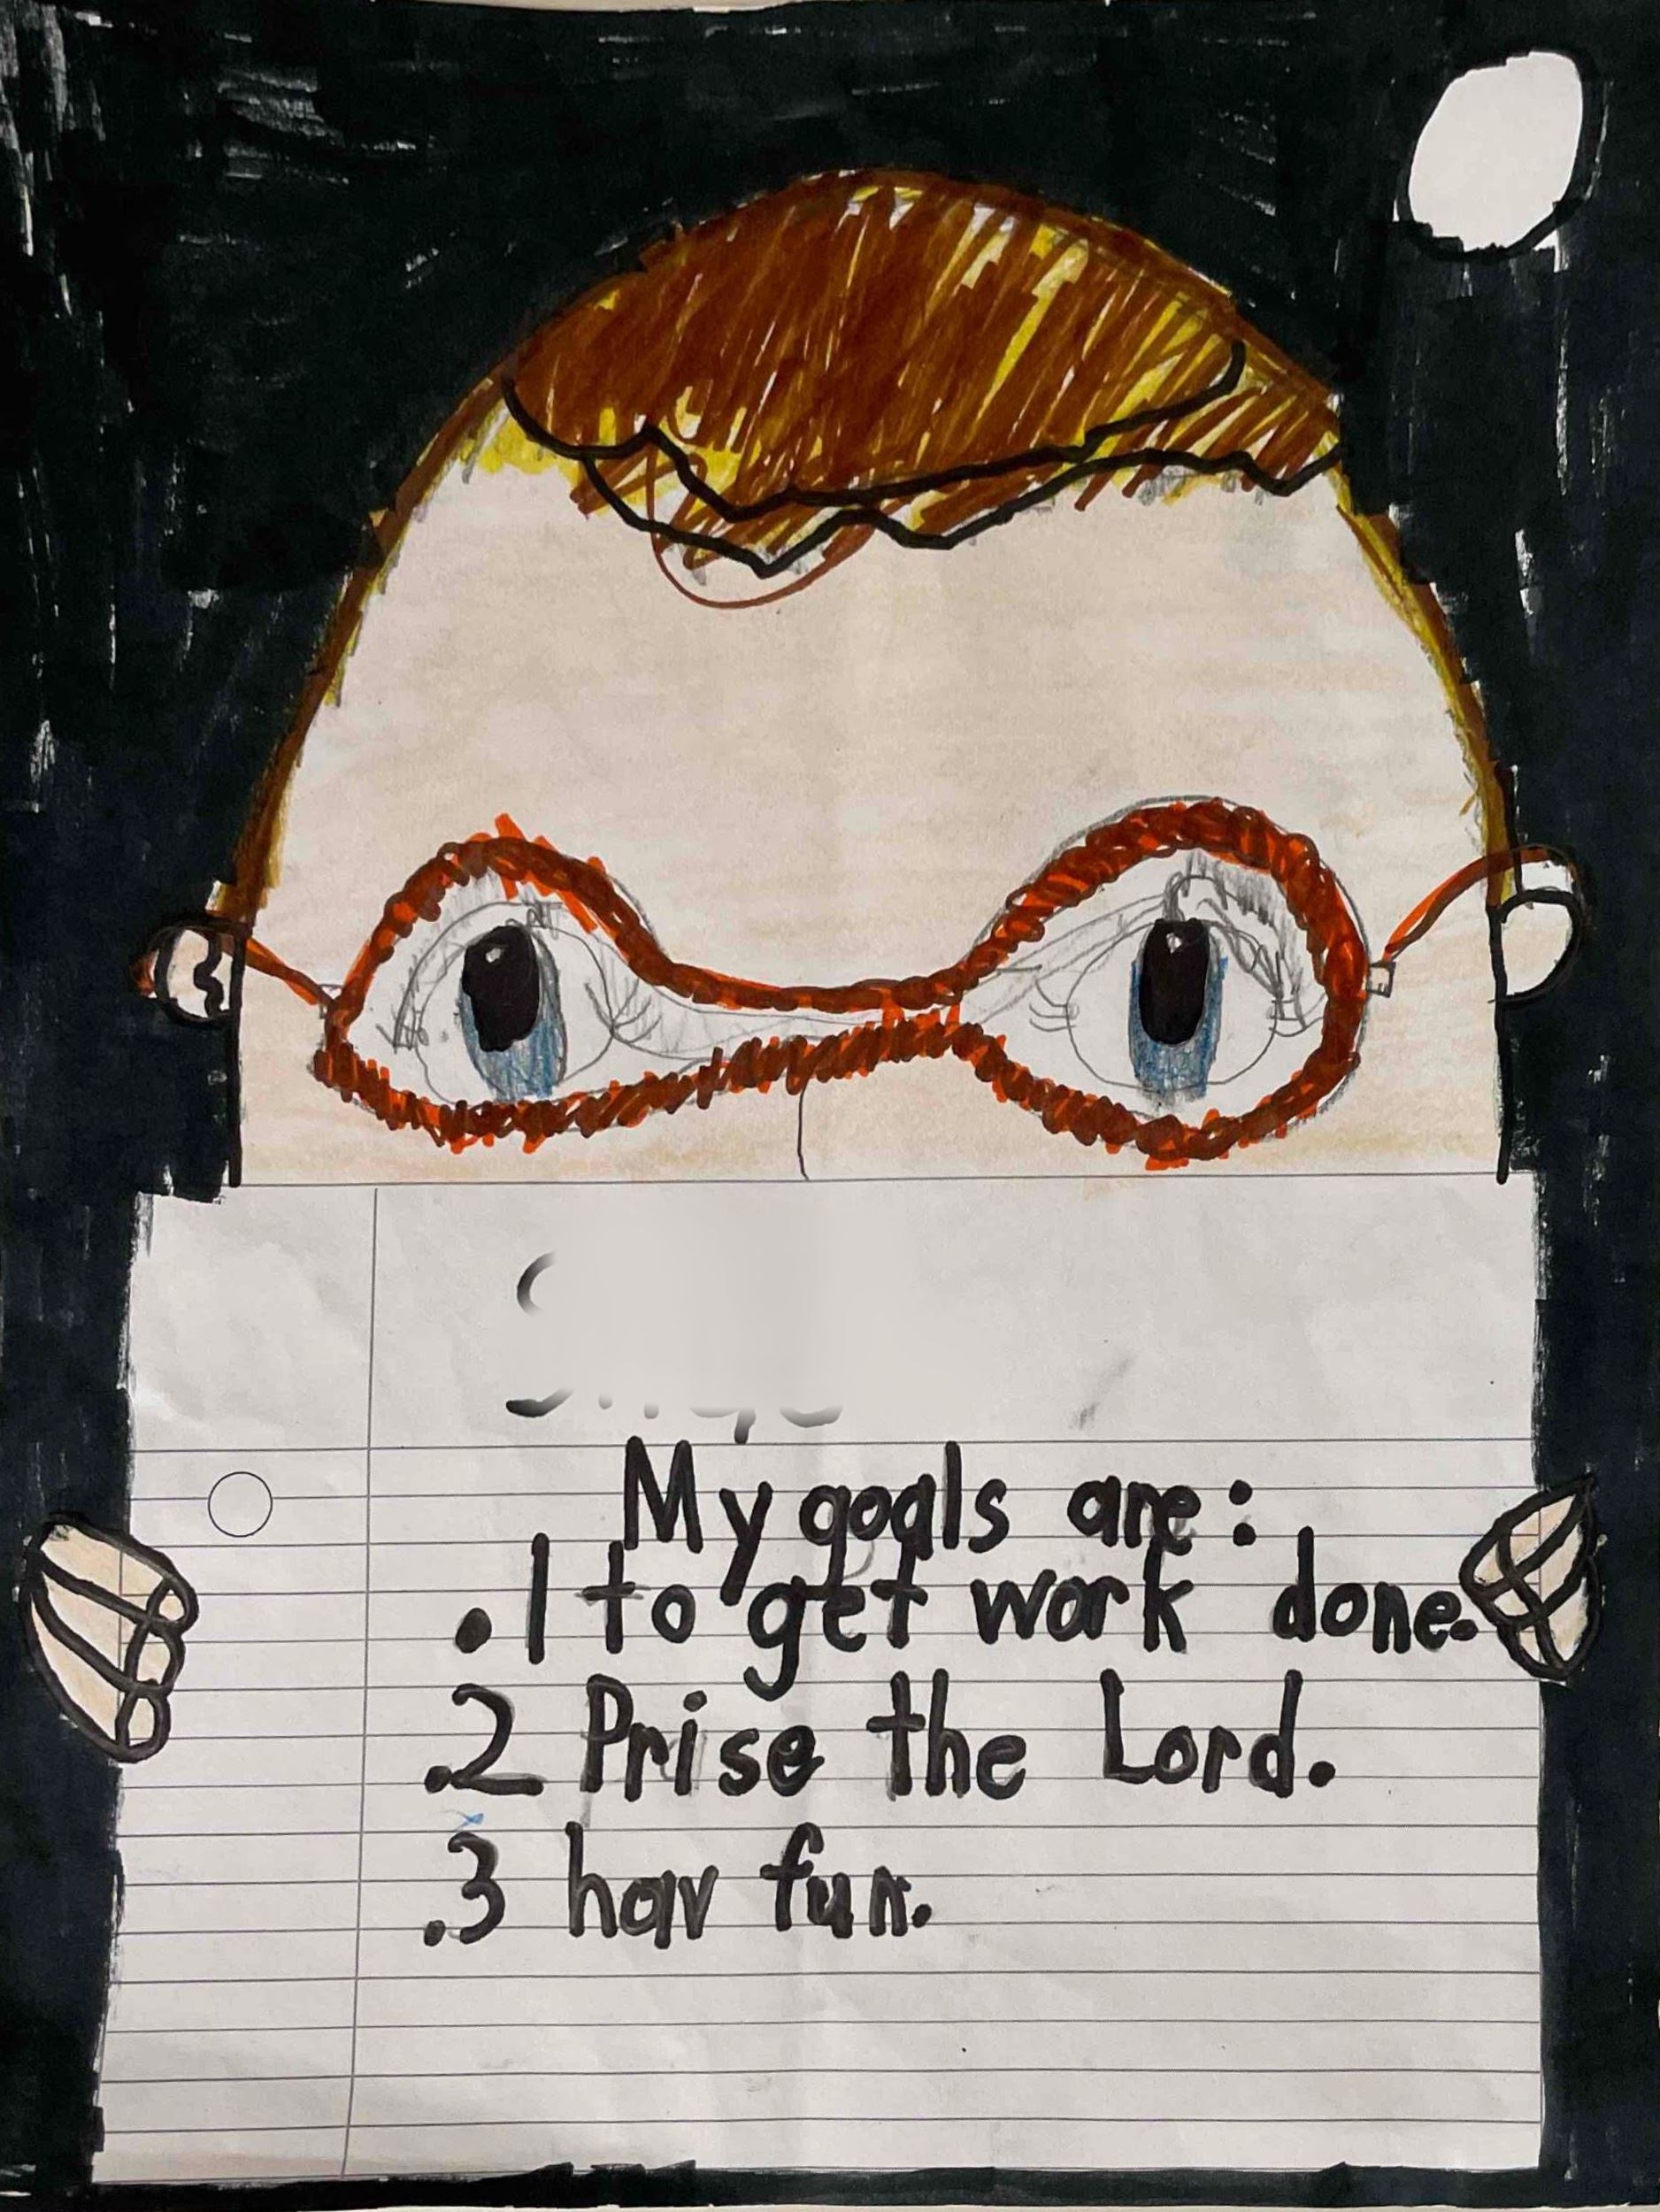 My goals are:
.1 to get work done.
.2 Prise the Lord.
.3 hav fun.